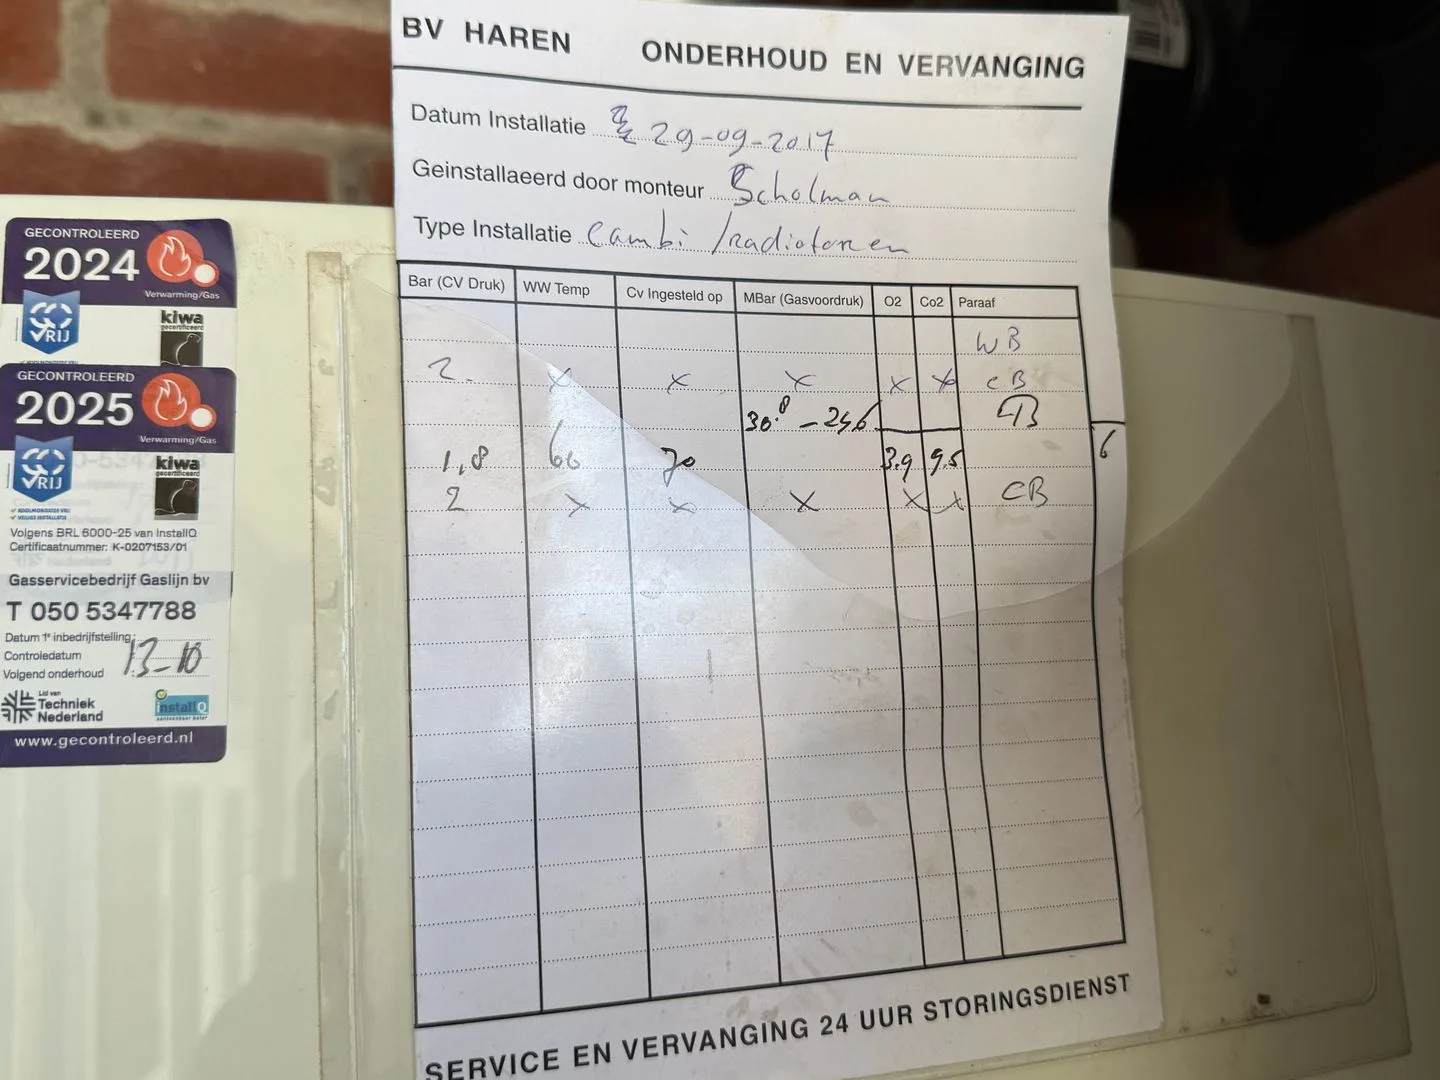 BV HAREN ONDERHOUD EN VERVANGING
Datum Installatie 29-09-2017
Geinstallaeerd door monteur Scholman
Type Installatie Combi / radiatoren
Bar (CV Druk) WW Temp Cv Ingesteld op MBar (Gasvoordruk) O2 Co2 Paraaf
WB
2. x x x x x CB
30.8 - 24,6
1,8 60 70 3.9 9.5
6
2 x x x x x CB
SERVICE EN VERVANGING 24 UUR STORINGSDIENST
GECONTROLEERD
2024
Verwarming/Gas
CO
VRIJ
kiwa
gecertificeerd
GECONTROLEERD
2025
Verwarming/Gas
CO
VRIJ
kiwa
gecertificeerd
✓ KOOLMONOXIDE VRIJ
✓ VEILIGE INSTALLATIE
Volgens BRL 6000-25 van InstallQ
Certificaatnummer: K-0207153/01
Gasservicebedrijf Gaslijn bv
T 050 5347788
Datum 1e inbedrijfstelling
Controledatum 13-10
Volgend onderhoud
Lid van
Techniek
Nederland
installQ
aantoonbaar beter
www.gecontroleerd.nl